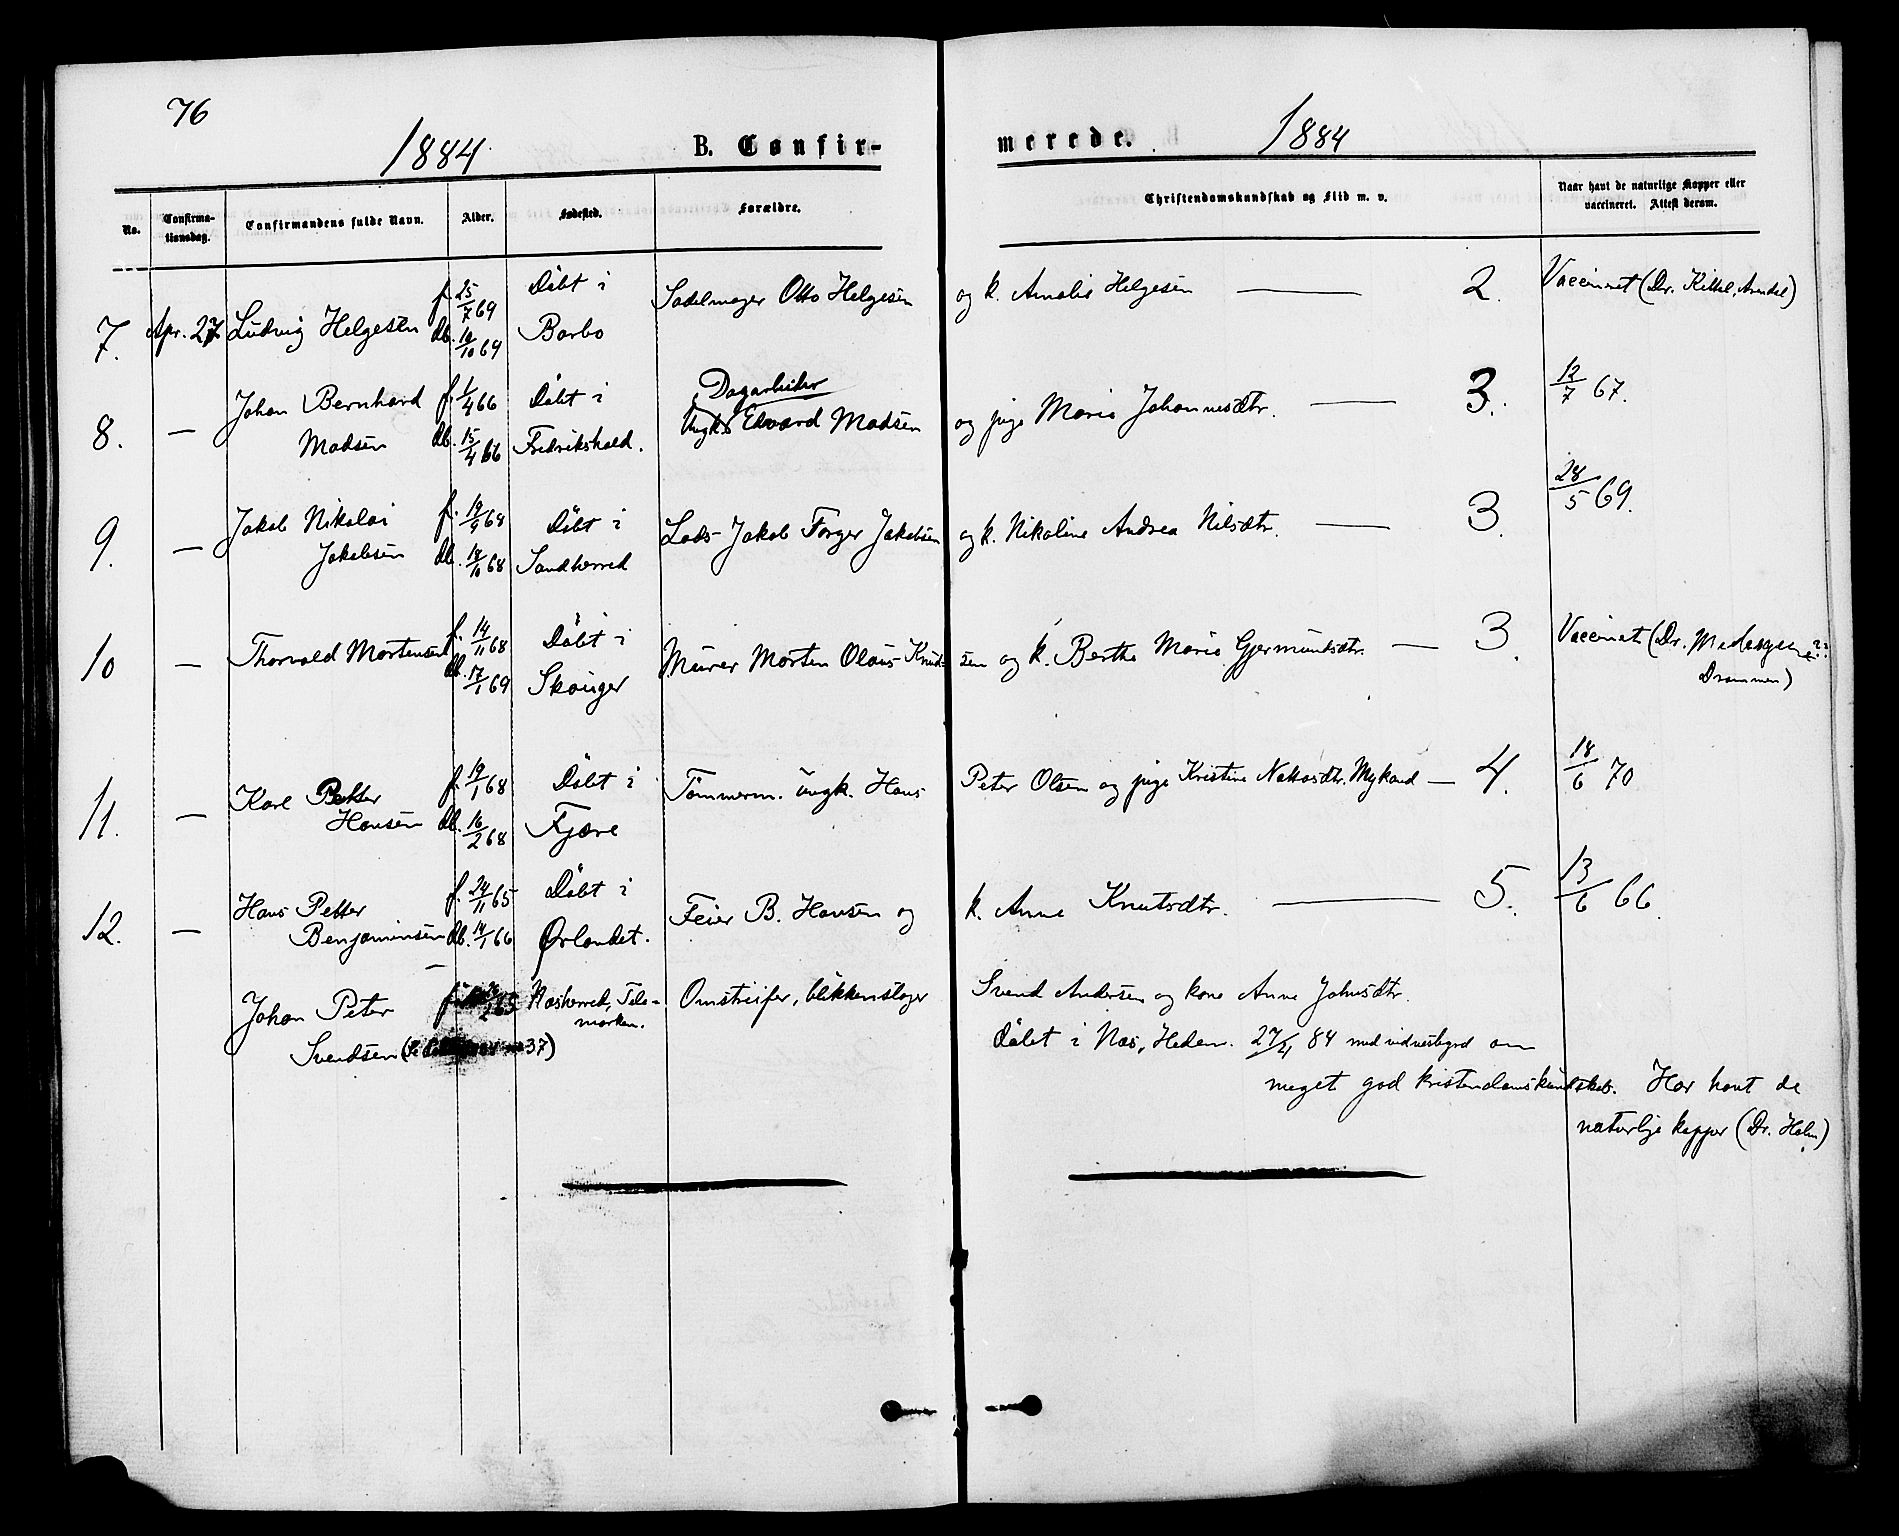 76
1884 B. Confir- merede. 1884
No. Confirma- tionsdag. Confirmandens fulde Navn. Alder. Fødested. Forældre. Christendomskundskab og Flid m. v. Naar havt de naturlige Kopper eller vaccineret. Attest derom.
7. Apr. 27 Ludvig Helgesen f. 25/7 69 Døbt i Sadelmager Otto Helgesen og k. Amalie Helgesen — 2. Vaccinert (Dr. Kittel, Arendal)
db. 10/10 69 Barbo
8. — Johan Bernhard f. 1/4 66 Døbt i Dagarbeider
Madsen db. 15/4 66 Fredrikshald. Ungk. Edvard Madsen og pige Maria Johannesdtr. — 3. 12/7 67.
9. — Jakob Nikolai f. 19/9 68 Døbt i Lods Jakob Torger Jakobsen og k. Nikoline Andrea Nilsdtr. — 3. 28/5 69.
Jakobsen db. 18/10 68 Sandherred
10 — Thorvald Mortensen f. 14/11 68 Døbt i Murer Morten Olaus Knud- sen og k. Berthe Maria Gjermundsdtr. — 3. Vaccinert (Dr.
db. 17/1 69 Skouger Drammen)
11. — Karl Petter f. 19/1 68 Døbt i Tømmerm. ungk. Hans Peter Olsen og pige Kristine Mykand — 4. 18/6 70
Hansen db. 16/2 68 Fjære
12. — Hans Petter f. 24/11 65 Døbt i Feier B. Hansen og k. Anne Knutsdtr. — 5. 13/6 66.
Benjaminsen db. 14/1 66 Ørlandet.
— Johan Peter f. 65 Næsherred, Tele- marken. Omstreifer, blikkenslager Svend Andersen og kone Anne Johnsdtr.
Svendsen ( 37) Døbt i Næs, Hedem. 27/4 84 med vidnesbyrd om
meget god kristendomskundskab. Har havt de
naturlige kopper (Dr. Holm)